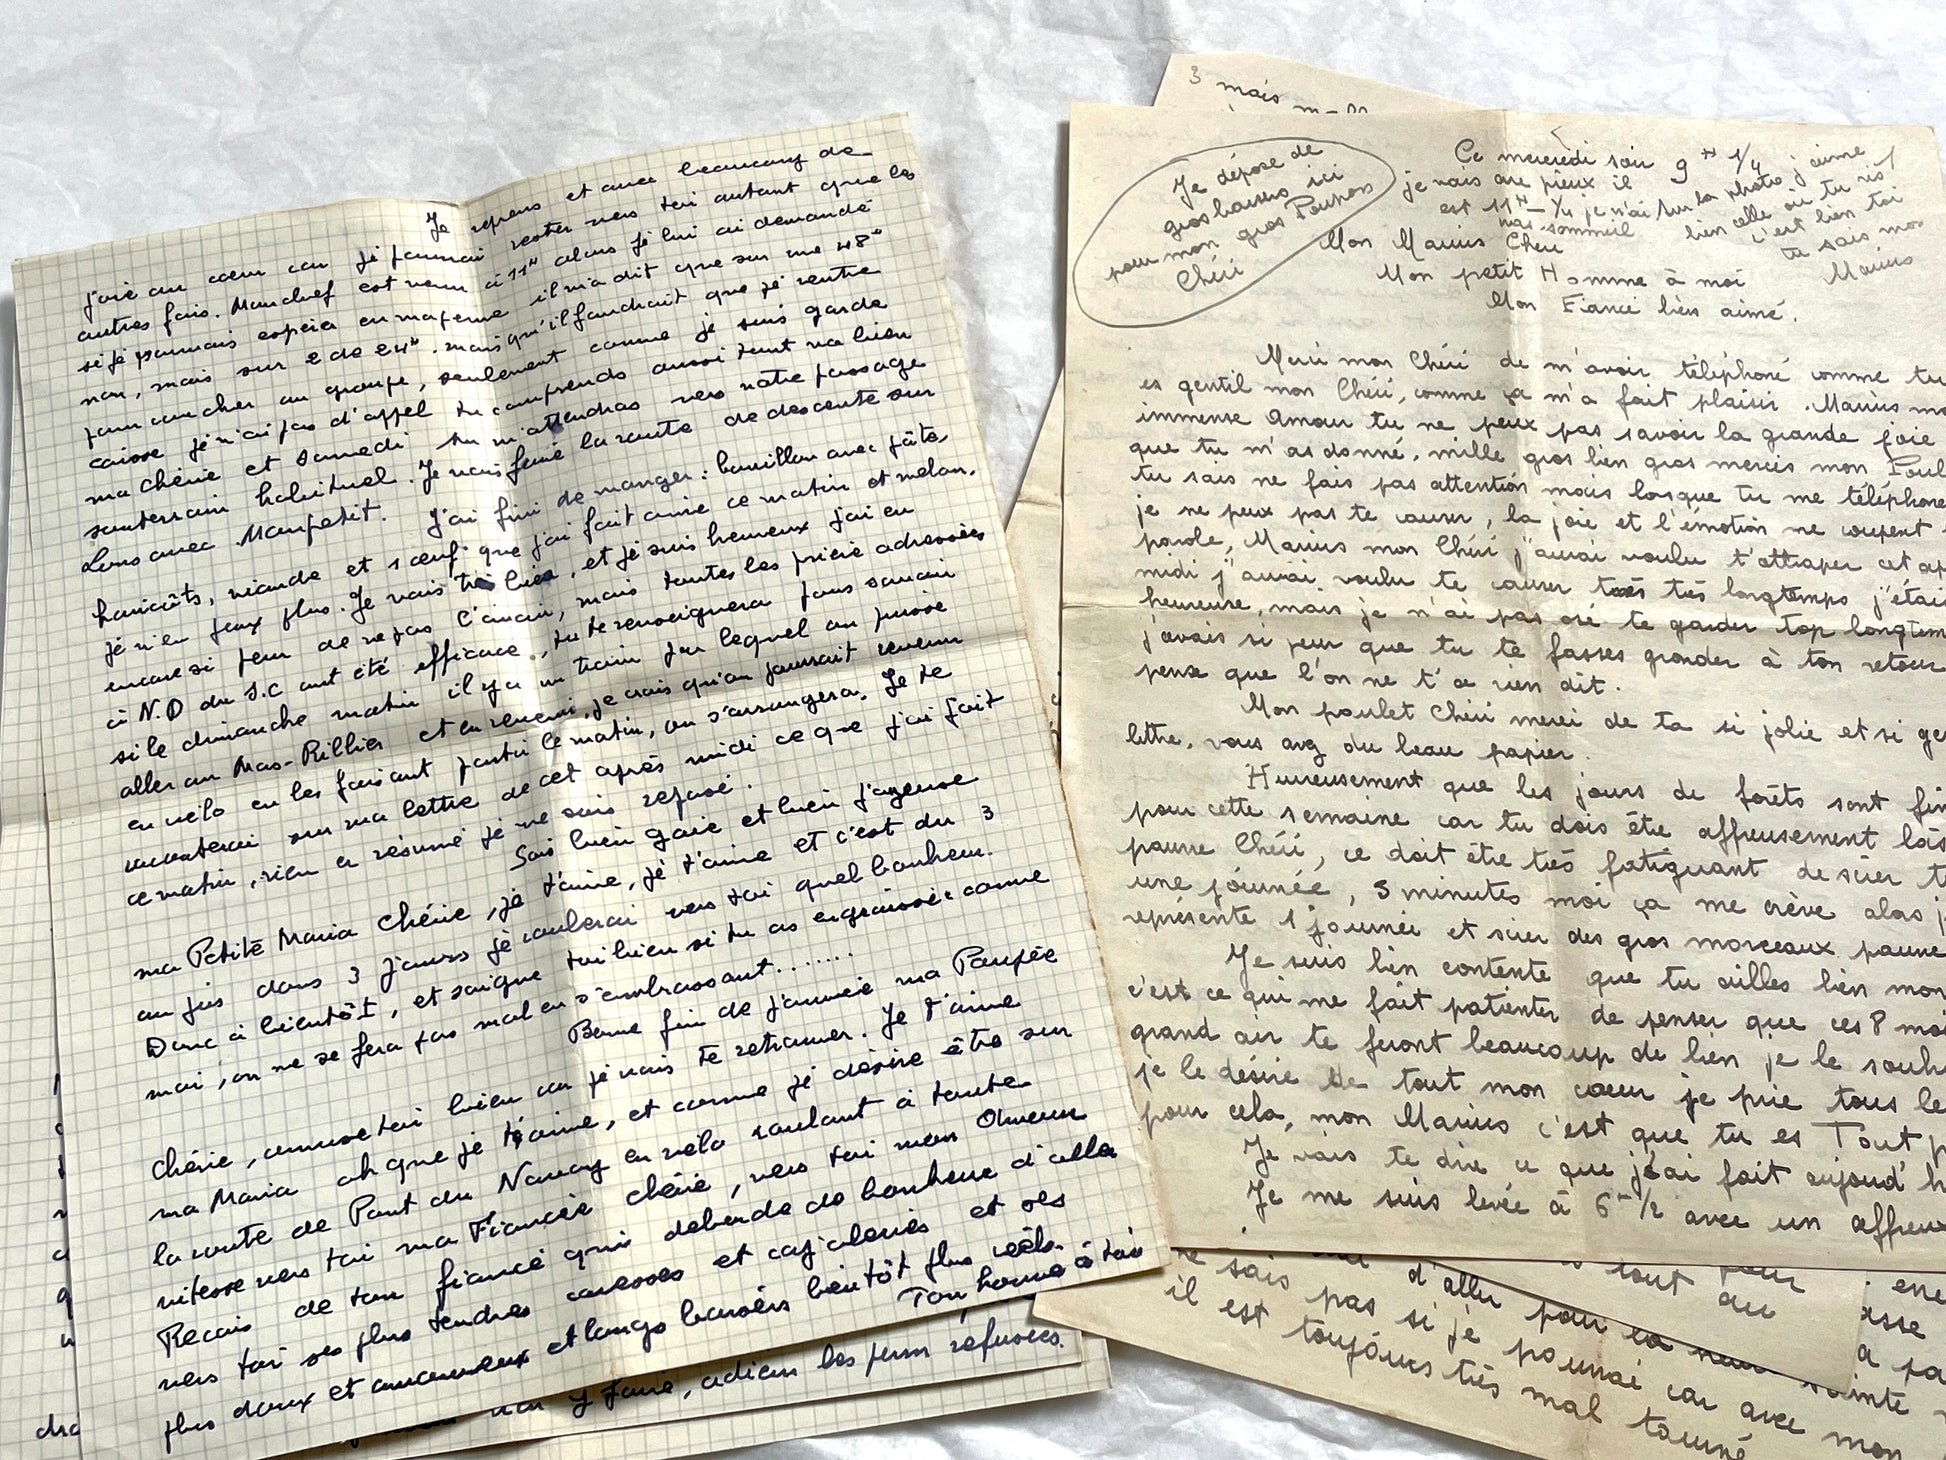 Je reprens et avec beaucoup de
joie au cœur car je pourrai rester vers toi autant que les
autres fois. Monchef est venu à 11H alors je lui ai demandé
si je pouvais espérer en ma perme il m'a dit que sur une 48H
non, mais sur 2 de 24H. mais qu'il faudrait que je rentre
pour coucher au groupe, seulement comme je suis garde
caisse je n'ai pas d'appel tu comprends aussi tout va bien
ma chérie et samedi tu m'attendras vers notre passage
souterrain habituel. Je vais faire la route de descente sur
Lons avec Monpetit.
J'ai fini de manger: bouillon avec pâte,
haricots, viande et 1 œuf que j'ai fait cuire ce matin et melon.
je n'en peux plus. Je vais très bien, et je suis heureux j'ai eu
encore si peur de ne pas t'avoir, mais toutes les prière adressées
à N.D du S.C ont été efficace, tu te renseignera pour savoir
si le dimanche matin il y a un train par lequel on puisse
aller au Mas-Rillier et en revenir, je crois qu'on pourrait revenir
en vélo en les faisant partir le matin, on s'arrangera. Je te
raconterai sur ma lettre de cet après midi ce que j'ai fait
ce matin, rien en résumé je me suis reposé.
Sois bien gaie et bien j'ayeuse
ma Petite Maria Chérie, je t'aime, je t'aime et c'est du 3
au jus dans 3 jours je roulerai vers toi quel bonheur.
Donc à bientôt, et soigne toi bien si tu as engraissée comme
moi, on ne se fera pas mal en s'embrassant.......
Bonne fin de journée ma Poupée
Chérie, amuse toi bien car je vais te retrouver. Je t'aime
ma Maria oh que je t'aime, et comme je désire être sur
la route de Pont du Navoy en vélo roulant à toute
vitesse vers toi ma Fiancée chérie, vers toi mon Amour
Recois de ton fiancé qui déborde de bonheur d'aller
vers toi ses plus tendres caresses et cajoleries et ses
plus doux et amoureux et longs baisers bientôt plus réels.
Ton homme à toi
y faire, adieu les perm refusées.
3 mais
Je dépose de
gros baisers ici
pour mon gros Poupon
Chéri
Ce mercredi soir 9H 1/4 j'aime
je vais au pieux il
est 11H 1/4 je n'ai
pas sommeil
sur la photo
bien celle où tu ris
c'est bien toi
tu sais mon
Marius
Mon Marius Chéri
Mon petit Homme à moi
Mon Fiancé bien aimé.
Merci mon Chéri de m'avoir téléphoné comme tu
es gentil mon Chéri, comme ça m'a fait plaisir. Marius mo
immense Amour tu ne peux pas savoir la grande joie
que tu m'as donné, mille gros bien gros mercis mon Poul
tu sais ne fais pas attention mais lorsque tu me téléphone
je ne peux pas te causer, la joie et l'émotion me coupent
parole, Marius mon Chéri j'aurai voulu t'attraper cet ap
midi j'aurai voulu te causer très très longtemps j'étai
heureuse, mais je n'ai pas osé te garder top longtem
j'avais si peur que tu te fasses gronder à ton retour
pense que l'on ne t'a rien dit.
Mon poulet Chéri merci de ta si jolie et si ge
lettre, vous avez du beau papier.
Heureusement que les jours de forêts sont fin
pour cette semaine car tu dois être affreusement las
pauvre Chéri, ce doit être très fatiguant de scier t
une journée, 5 minutes moi ça me crève alors j
représente 1 journée et scier des gros morceaux pauvre
Je suis bien contente que tu ailles bien mon
c'est ce qui me fait patienter de penser que ces 8 moi
grand air te feront beaucoup de bien je le souh
je le désire de tout mon cœur je prie tous le
pour cela, mon Marius c'est que tu es Tout p
Je vais te dire ce que j'ai fait aujoud'h
Je me suis levée à 6H 1/2 avec un affreux
d'aller pour la
tout au
pour
sais pas si je pourrai car avec mon
il est toujours très mal tourné